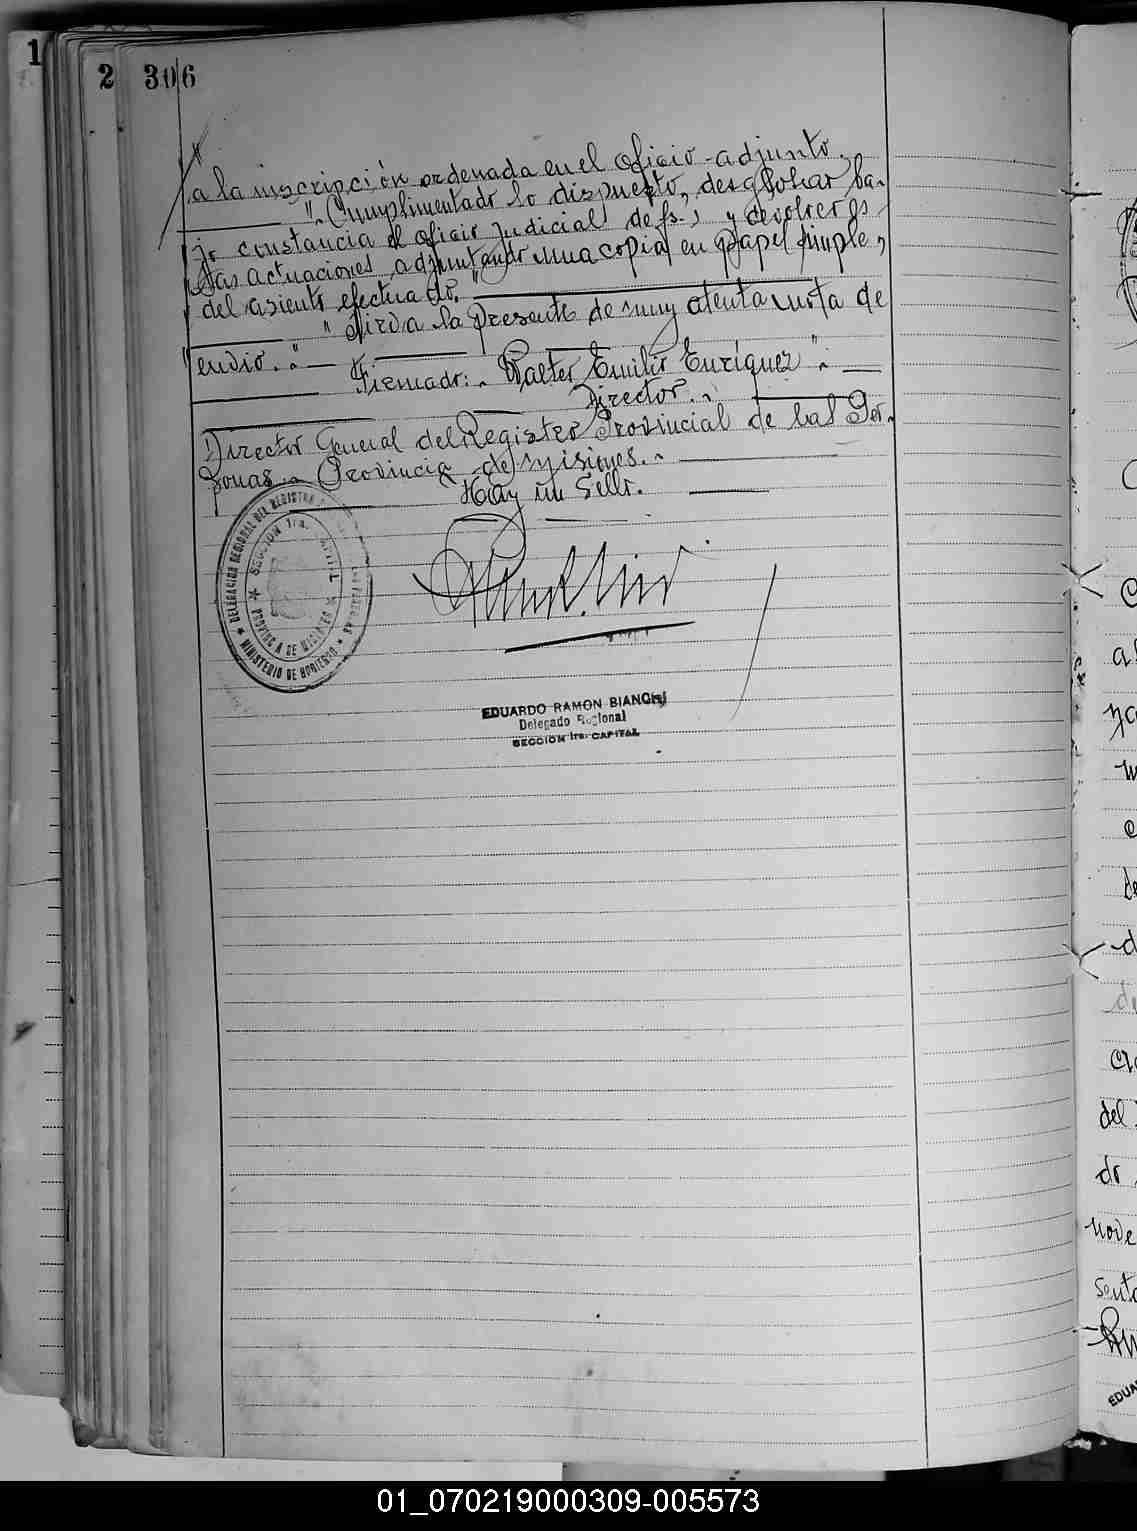 1
2
306
a la inscripción ordenada en el oficio adjunto.
". Cumplimentado lo dispuesto, desglosar ba-
jo constancia el oficio judicial de fs., y devolver es
tas actuaciones adjuntando una copia en papel simple,
del asiento efectuado.
" Sirva la presente de muy atenta nota de
" envio. "
Firmado: Walter Emilio Enríquez ".
Director.
Director General del Registro Provincial de las Per-
sonas. Provincia de Misiones.
Hay un Sello.
DELEGACION REGIONAL DEL REGISTRO
SECCION 1ra. CAPITAL
PROVINCIA DE MISIONES
MINISTERIO DE GOBIERNO
EDUARDO RAMON BIANCHI
Delegado Regional
SECCION 1ra. CAPITAL
del
do
nove
EDUA
01_070219000309-005573